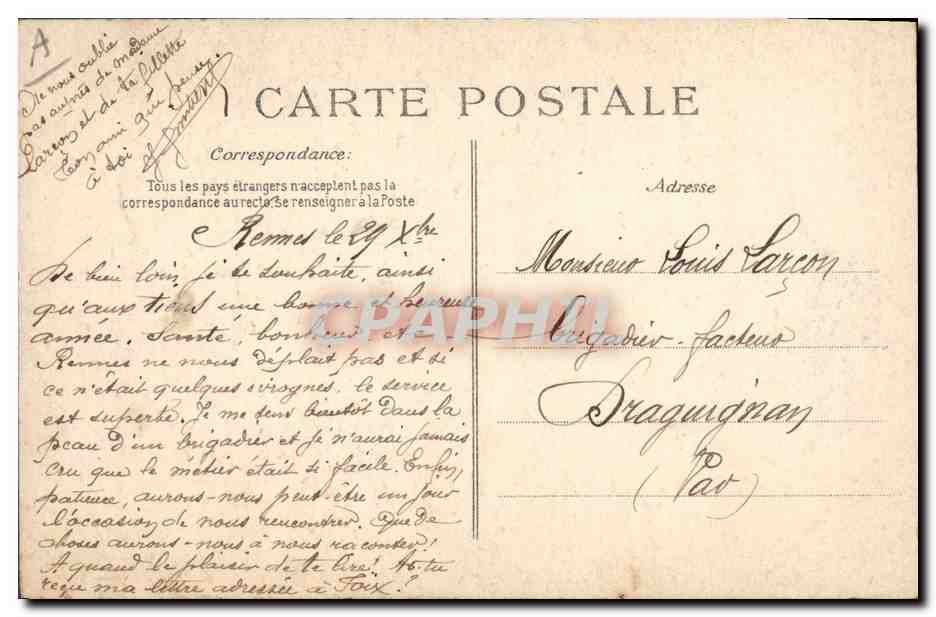 A
Ne nous oublie
pas auprès de Madame
Larçon et de ta fillette
Ton ami qui pense
à toi
CARTE POSTALE
Correspondance:
Tous les pays étrangers n'acceptent pas la
correspondance au recto, se renseigner à la Poste
Adresse
Rennes le 29 Xbre
De bien loin, je te souhaite, ainsi
qu'aux tiens une bonne et heureuse
année. Santé, bonheur etc
Rennes ne nous déplait pas et si
ce n'était quelques ivrognes, le service
est superbe. Je me sens bientôt dans la
peau d'un brigadier et je n'aurai jamais
cru que le métier était si facile. Enfin,
patience, aurons-nous peut-être un jour
l'occasion de nous rencontrer. Que de
choses aurons-nous à nous raconter!
A quand le plaisir de te lire! As-tu
reçu ma lettre adressée à Foix?
Monsieur Louis Larçon
brigadier-facteur
Draguignan
(Var)
CPAPHIL